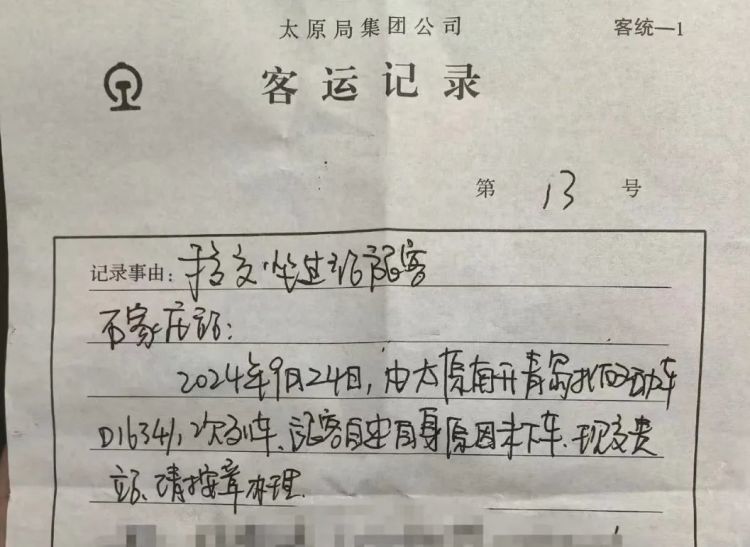 太原局集团公司 客统—1
客运记录
第 13 号
记录事由: 移交坐过站旅客
石家庄站:
2024年9月24日,由太原南开青岛北的动车
D1634/1次列车、旅客自述自身原因未下车、现交贵
站、请按章办理.